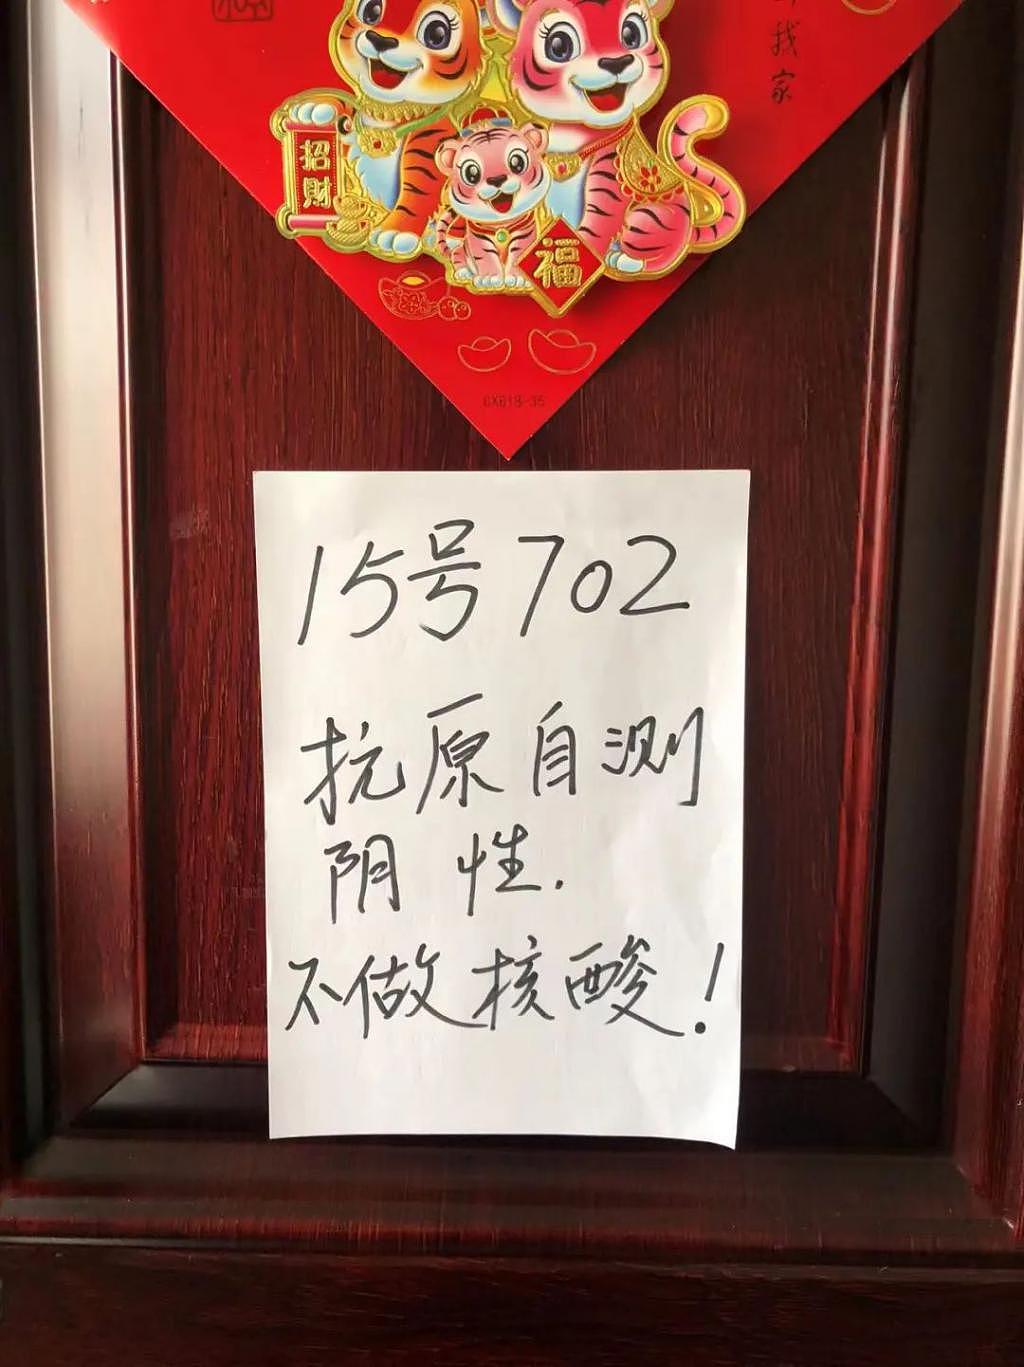 找家
招財
福
CX618-35
15号702
抗原自测
阴性.
不做核酸！